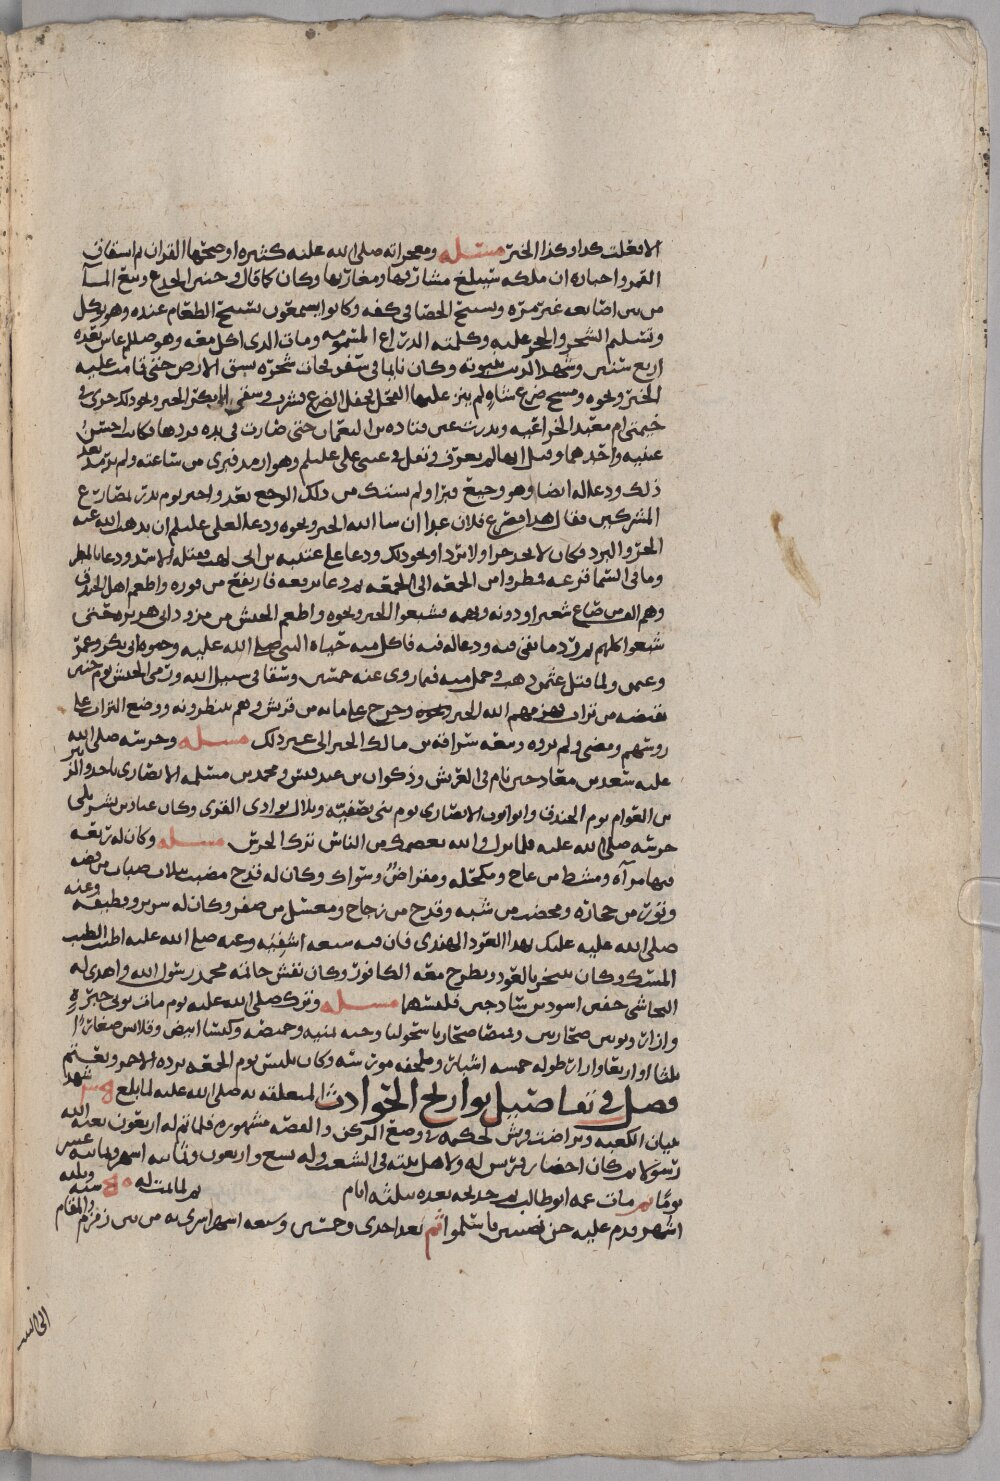 الا فعلت كذا وكذا الخبر مسئله ومعجزاته صلى الله عليه كثيره اوضحها القران ثم انشقاق
القمر واخباره ان ملكه سيبلغ مشارقها ومغاربها وكان كما قال وحنين الجذع ونبع الماء
من بين اصابعه غير مره وتسبيح الحصا في كفه وكانوا يسمعون تسبيح الطعام عنده وهو يوكل
وتسليم الشجر والحجر عليه وكلمته الذراع المسمومه ومات الذي اكل معه وهو صللم عاش بعده
اربع سنين وشهد الذيب بنبوته وكان نايما في سفر فجات شجره تشق الارض حتى قامت عليه
الخبر ونحوه ومسح ضرع شاه لم ينز عليها الفحل فحفل الضرع فشرب وسقى ابا بكر الخبر ونحو ذلك جرى في
خيمتي ام معبد الخزاعيه وندرت عين قتاده بن النعمان حتى صارت في يده فردها فكانت احسن
عينيه واحدهما وقيل انها لم تعرف وتفل في عيني علي عليلم وهو ارمد فبرى من ساعته ولم يرمد بعد
ذلك ودعا له ايضا وهو وجيع فبرا ولم يشتك من ذلك الوجع بعد واخبر يوم بدر بمصارع
المشركين فقال هذا مصرع فلان غدا ان شا الله الخبر ونحوه ودعا لعلي عليلم ان يذهب الله عنه
الحر والبرد فكان لا يجد حرا ولا بردا ونحو ذلك ودعا على عتيبه بن ابي لهب فقتله الاسد ودعا بالمطر
وما في السما قزعه فمطروا من الجمعه الى الجمعه ثم دعا برفعه فارتفع من فوره واطعم اهل الخندق
وهم الف من صاع شعير او دونه وبهمه فشبعوا الخبر ونحوه واطعم الجيش من مزود ابي هريره حتى
شبعوا كلهم ثم رد ما بقي فيه ودعا له فيه فاكل منه حياه النبي صلى الله عليه وحيوه ابي بكر وعمر
وعثمن ولما قتل عثمن ذهب وحمل منه فيما روى عنه خمسين وسقا في سبيل الله ورمى الجيش يوم حنين
بقبضه من تراب فهزمهم الله الخبر ونحوه وخرج على مايه من قريش وهم ينتظرونه ووضع التراب على
روسهم ومضى ولم يروه وتبعه سراقه بن مالك الخبر الى غير ذلك مسئله وحرسه صلى الله
عليه سعد بن معاذ حين نام في العريش وذكوان بن عبد قيس ومحمد بن مسلمه الانصاري باحد والزبير
بن العوام يوم الخندق وابو ايوب الانصاري يوم بنى بصفيه وبلال بوادي القرى وكان عباد بن بشر يلي
حرسه صلى الله عليه فلما نزل والله يعصمك من الناس ترك الحرس مسئله وكان له ربعه
فيها مراه ومشط من عاج ومكحله ومقراض وسواك وكان له قدح مضبب بثلاث ضبات من فضه
وتور من حجاره ومخضب من شبه وقدح من زجاج ومغسل من صفر وكان له سرير وقطيفه وعنه
صلى الله عليه عليكم بهذا العود الهندي فان فيه سبعه اشفيه وعنه صلى الله عليه اطيب الطيب
المسك وكان يتبخر بالعود ويطرح معه الكافور وكان نقش خاتمه محمد رسول الله واهدى له
النجاشي خفين اسودين ساذجين فلبسهما مسئله وترك صلى الله عليه يوم مات ثوبي حبره
وازار وثوبين صحاريين وقميصا صحاريا سحوليا وجبه يمنيه وخميصه وكسا ابيض وقلانس صغارا
ثلثا او اربعا وازار طوله خمسه اشبار وملحفه مورسه وكان يلبس يوم الجمعه برده الاحمر ويعتم
فصل في تفاصيل تواريخ الحوادث المتعلقه به صلى الله عليه لما بلغ شهد
بنيان الكعبه وتراضت قريش بحكمه في وضع الركن والقصه مشهوره فلما تم له اربعون بعثه الله
رسولا ثم كان احصار قريش له ولاهل بيته في الشعب وله تسع واربعون وثمانيه اشهر وثمانيه عشر
يوما ثم مات عمه ابو طالب ثم خديجه بعده بثلثه ايام ثم لما تمت له سنه وثلثه
اشهر قدم عليه جن نصيبين فاسلموا ثم بعد احدى وخمسين وتسعه اشهر اسري به من بين زمزم والمقام
الى البيت